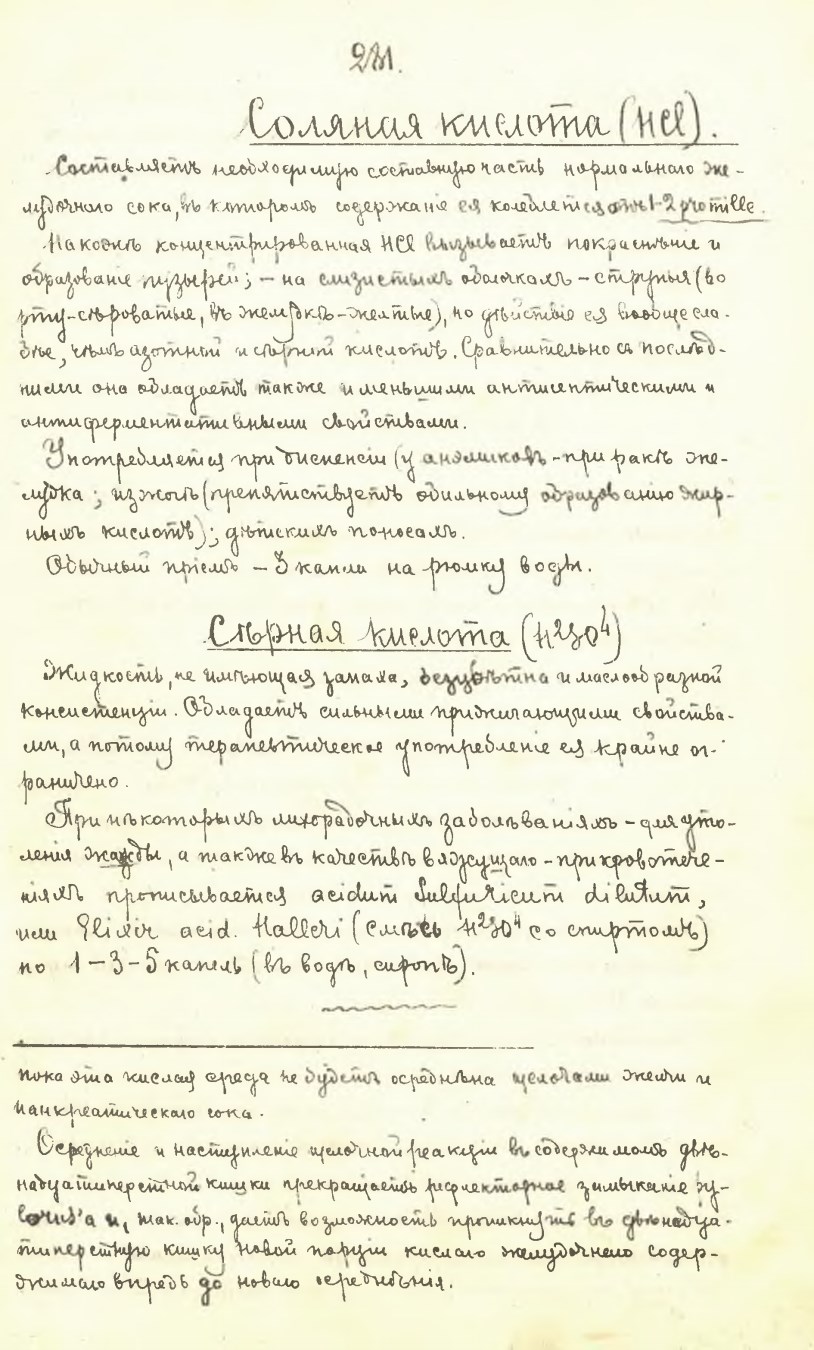 231.
Соляная кислота (HCl).
Составляетъ необходимую составную часть нормальнаго же-
лудочнаго сока, въ которомъ содержаніе ея колеблется отъ 1-2 promille.
На кожѣ концентрированная HCl вызываетъ покраснѣніе и
образованіе пузырей; – на слизистыхъ оболочкахъ – струпья (во
рту – сѣроватые, въ желудкѣ – желтые), но дѣйствіе ея вообще сла-
бѣе, чѣмъ азотной и сѣрной кислотъ. Сравнительно съ послѣд-
ними она обладаетъ также и меньшими антисептическими и
антиферментативными свойствами.
Употребляется при диспепсіи (у анэмиковъ – при ракѣ же-
лудка; изжогѣ (препятствуетъ обильному образованію жир-
ныхъ кислотъ); дѣтскихъ поносахъ.
Обычный пріемъ – 3 капли на рюмку воды.
Сѣрная кислота (H²SO⁴)
Жидкость, не имѣющая запаха, безцвѣтна и маслообразной
консистенціи. Обладаетъ сильными прижигающими свойства-
ми, а потому терапевтическое употребленіе ея крайне ог-
раничено.
При нѣкоторыхъ лихорадочныхъ заболѣваніяхъ – для уто-
ленія жажды, а также въ качествѣ вяжущаго – при кровотече-
ніяхъ прописывается acidum Sulfuricum dilutum,
или Elixir acid. Halleri (смѣсь H²SO⁴ со спиртомъ)
по 1 – 3 – 5 капель (въ водѣ, сиропѣ).
пока эта кислая среда не будетъ осреднѣна щелочами желчи и
панкреатическаго сока.
Осредненіе и наступленіе щелочной реакціи въ содержимомъ двѣ-
надцатиперстной кишки прекращаетъ рефлекторное замыканіе py-
lorus'а и, так. обр., даетъ возможность проникнуть въ двѣнадца-
типерстную кишку новой порціи кислаго желудочнаго содер-
жимаго впредь до новаго осреднѣнія.